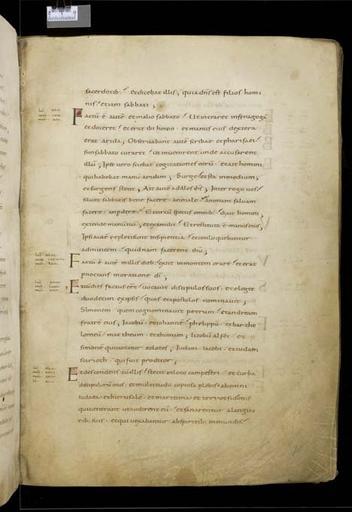 sacerdotib; Et dicebat illis; quia dns est filius homi
nis etiam sabbati;
Factū ē autē et in alio sabbato Ut intraret in synagogā
et doceret et erat ibi homo et manus eius dextera
erat arida; Observabant autē scribae et pharisaei
si in sabbato curaret ut invenirent unde accusarent
illū; Ipse vero sciebat cogitationes eorū et ait homini
qui habebat manū aridam; Surge et sta in mediū;
et surgens stetit; Ait autē ad illos ihs; Interrogo vos
si licet sabbato bene facere an male animam salvam
facere an perdere Et circū spectis omnib; dixit homini
extende manū tuā et extendit Et restituta ē manus eius
Ipsi autē repleti sunt insipientia et conloquebantur
ad invicem quidnam facerent ihu;
Factū ē autē in illis dieb; exiit in montem orare et erat
pnoctans in oratione di;
Et cū dies factus esset vocavit discipulos suos et elegit
duodecim ex ipsis quos et apostolos nominavit;
Simonem quem cognominavit petrum et andream
fratrē eius; Iacobū et iohannē philippū et bartho
lomeū mattheum et thomam; Iacobū alphei et
simonē qui vocatur zelotes; Iudam iacobi et iudam
scarioth qui fuit proditor;
Et descendens cū illis stetit in loco campestri et turba
discipulorū eius et multitudo copiosa plebis ab omni
iudaea et hierusalē et maritima et tyri et sidonis
qui venerant ut audirent eū et sanarentur a languo
rib; suis et qui vexabantur a spiritib; inmundis